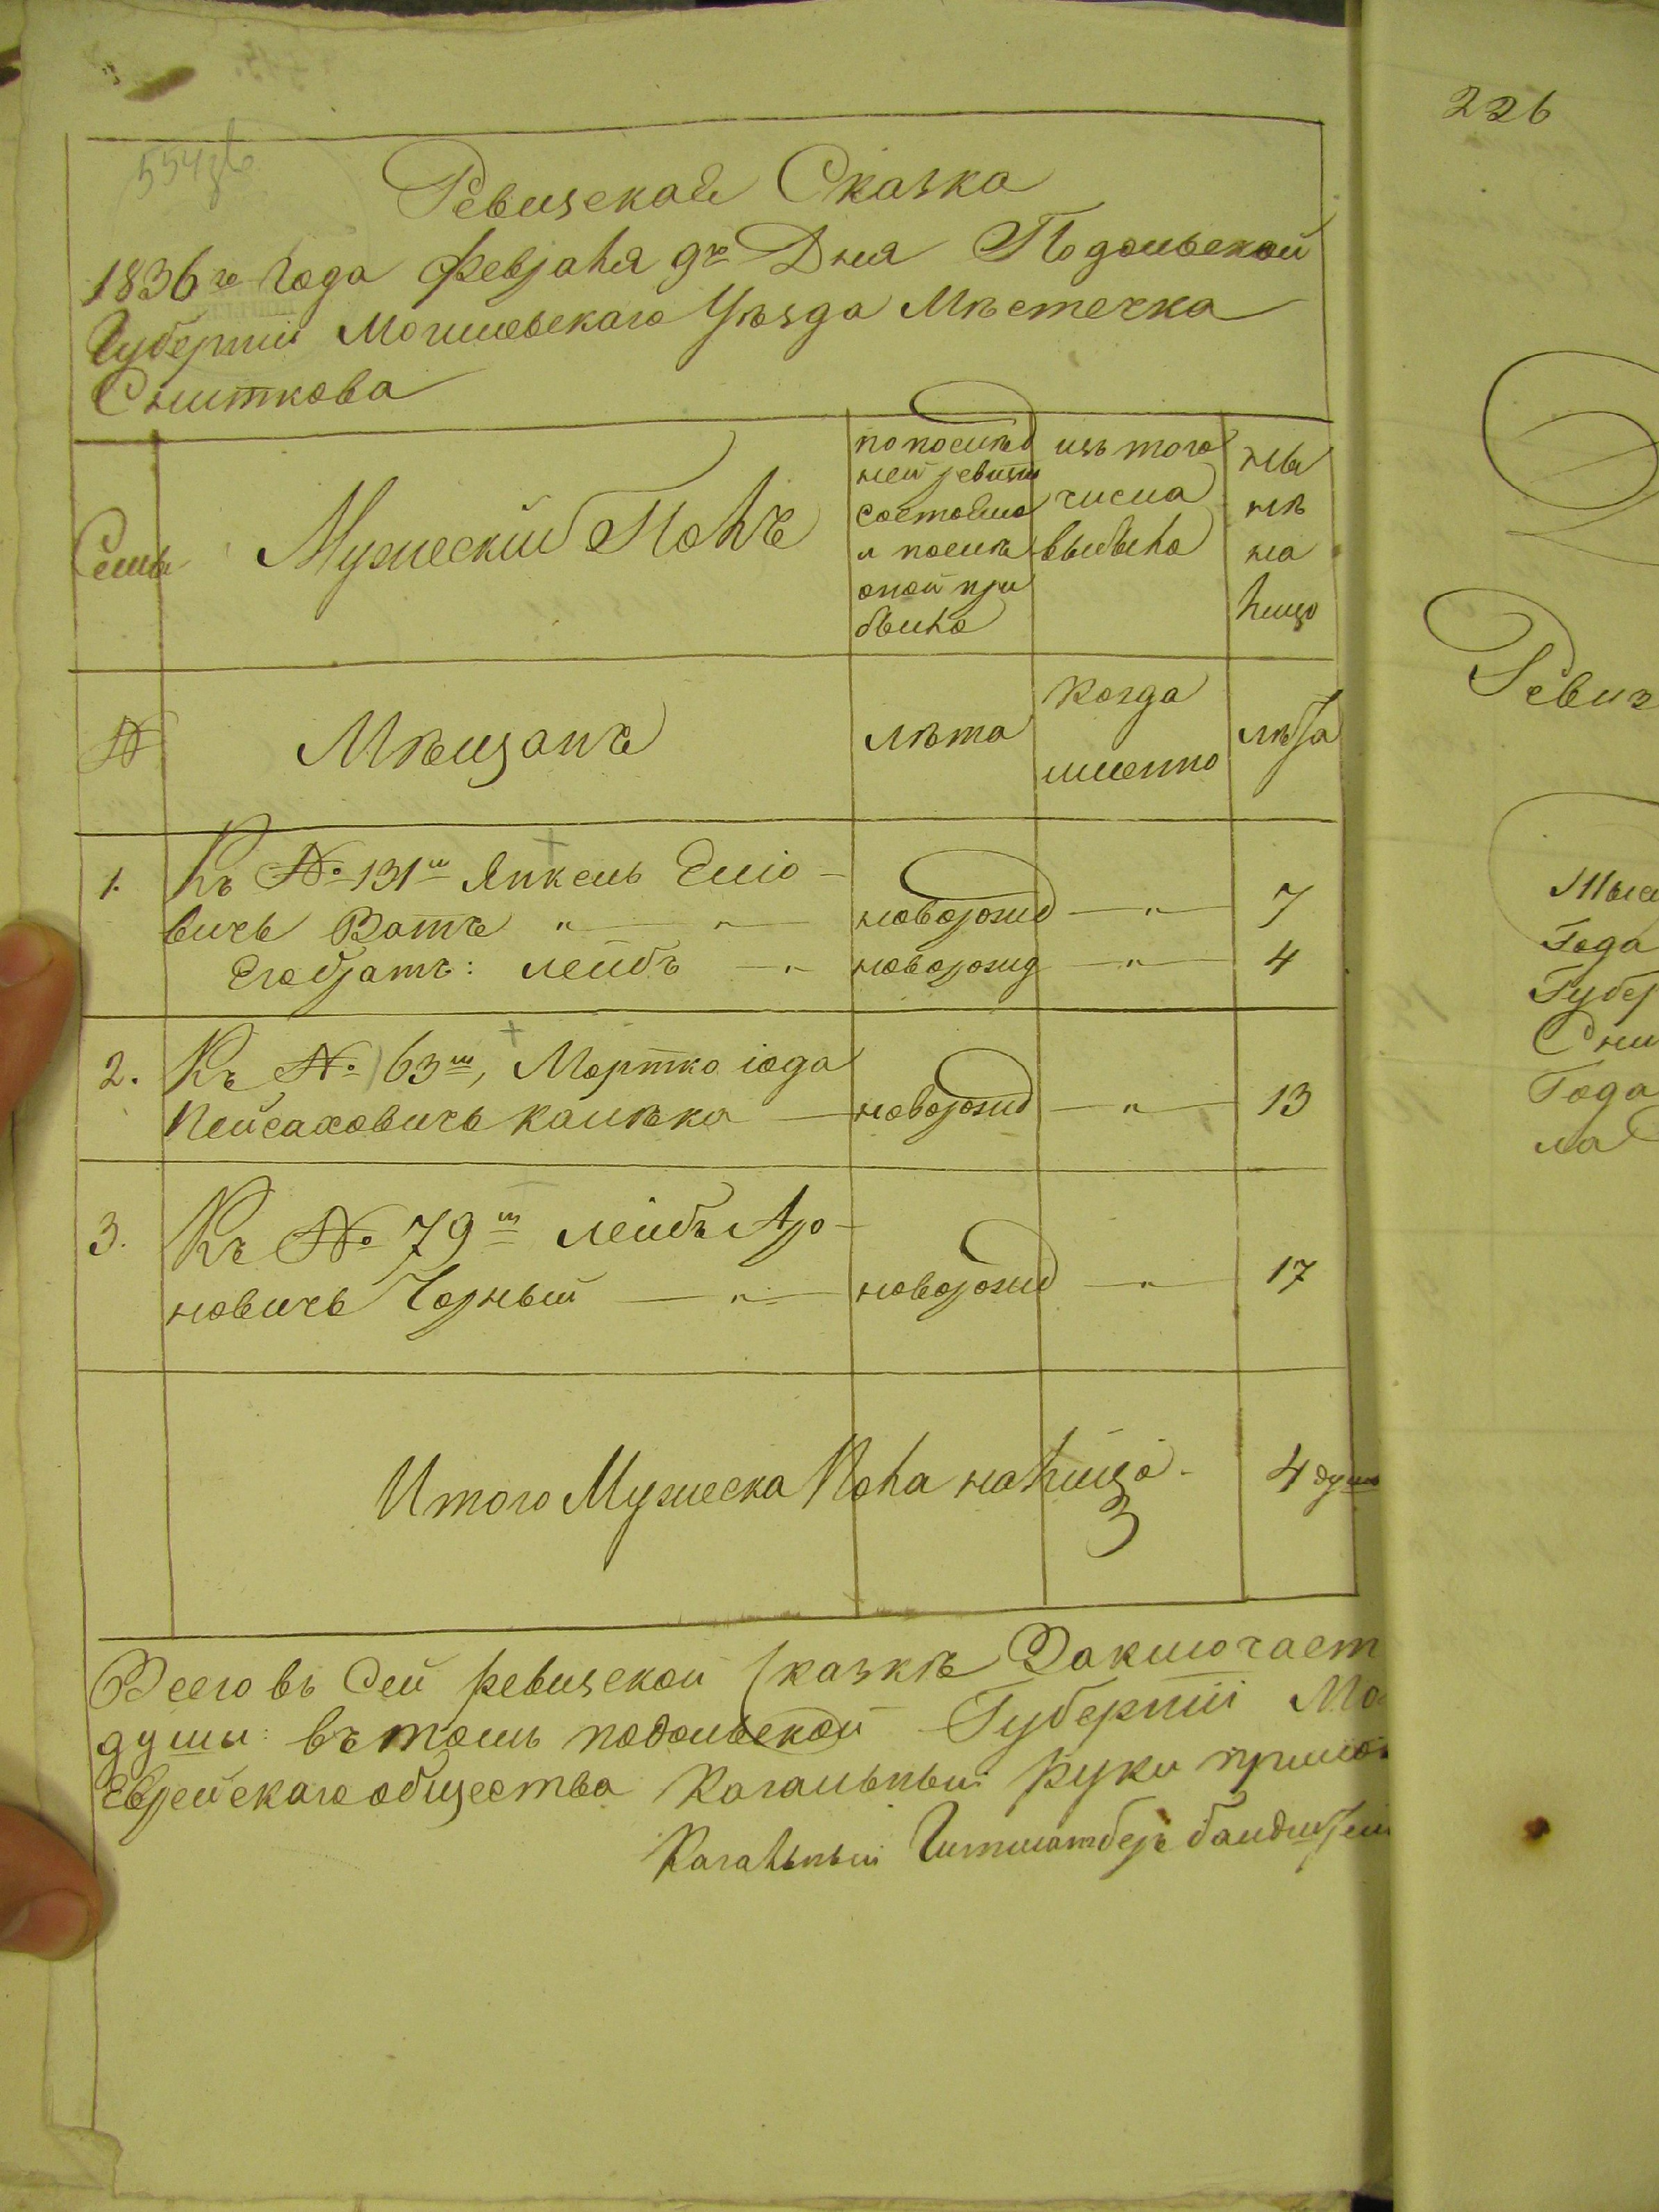 226
Ревизская Сказка
1836го Года февраля 9го Дня Подольской
Губернии Могилевскаго Уѣзда Мѣстечка
Сниткова
Семьи
Мужескій Полъ
по послѣд
ней ревизіи
состояло
и послѣ
оной при
было
изъ того
числа
выбыло
ны
нѣ
на
лицо
№
Мѣщанъ
лѣта
когда
именно
лѣта
1.
Къ № 131ш Янкель Еліо-
вичъ Ватъ " — " новорожд — " — 7
Его братъ: лейбъ — " новорожд — " — 4
2.
Къ № 63ш, Мортко іода
Пейсаховичъ калѣка — новорожд — " — 13
3.
Къ № 79ш лейбъ Аро-
новичъ Чорный — " — новорожд — " — 17
Итого Мужеска Пола на лицо - 4 душъ
Всего въ сей ревизской сказкѣ Заключает
души: въ томъ подольской Губерніи Мо
Еврейскаго общества Кагальный руку прилож
Кагальный
Ревиз
Года
Губер
Сни
Года
ла